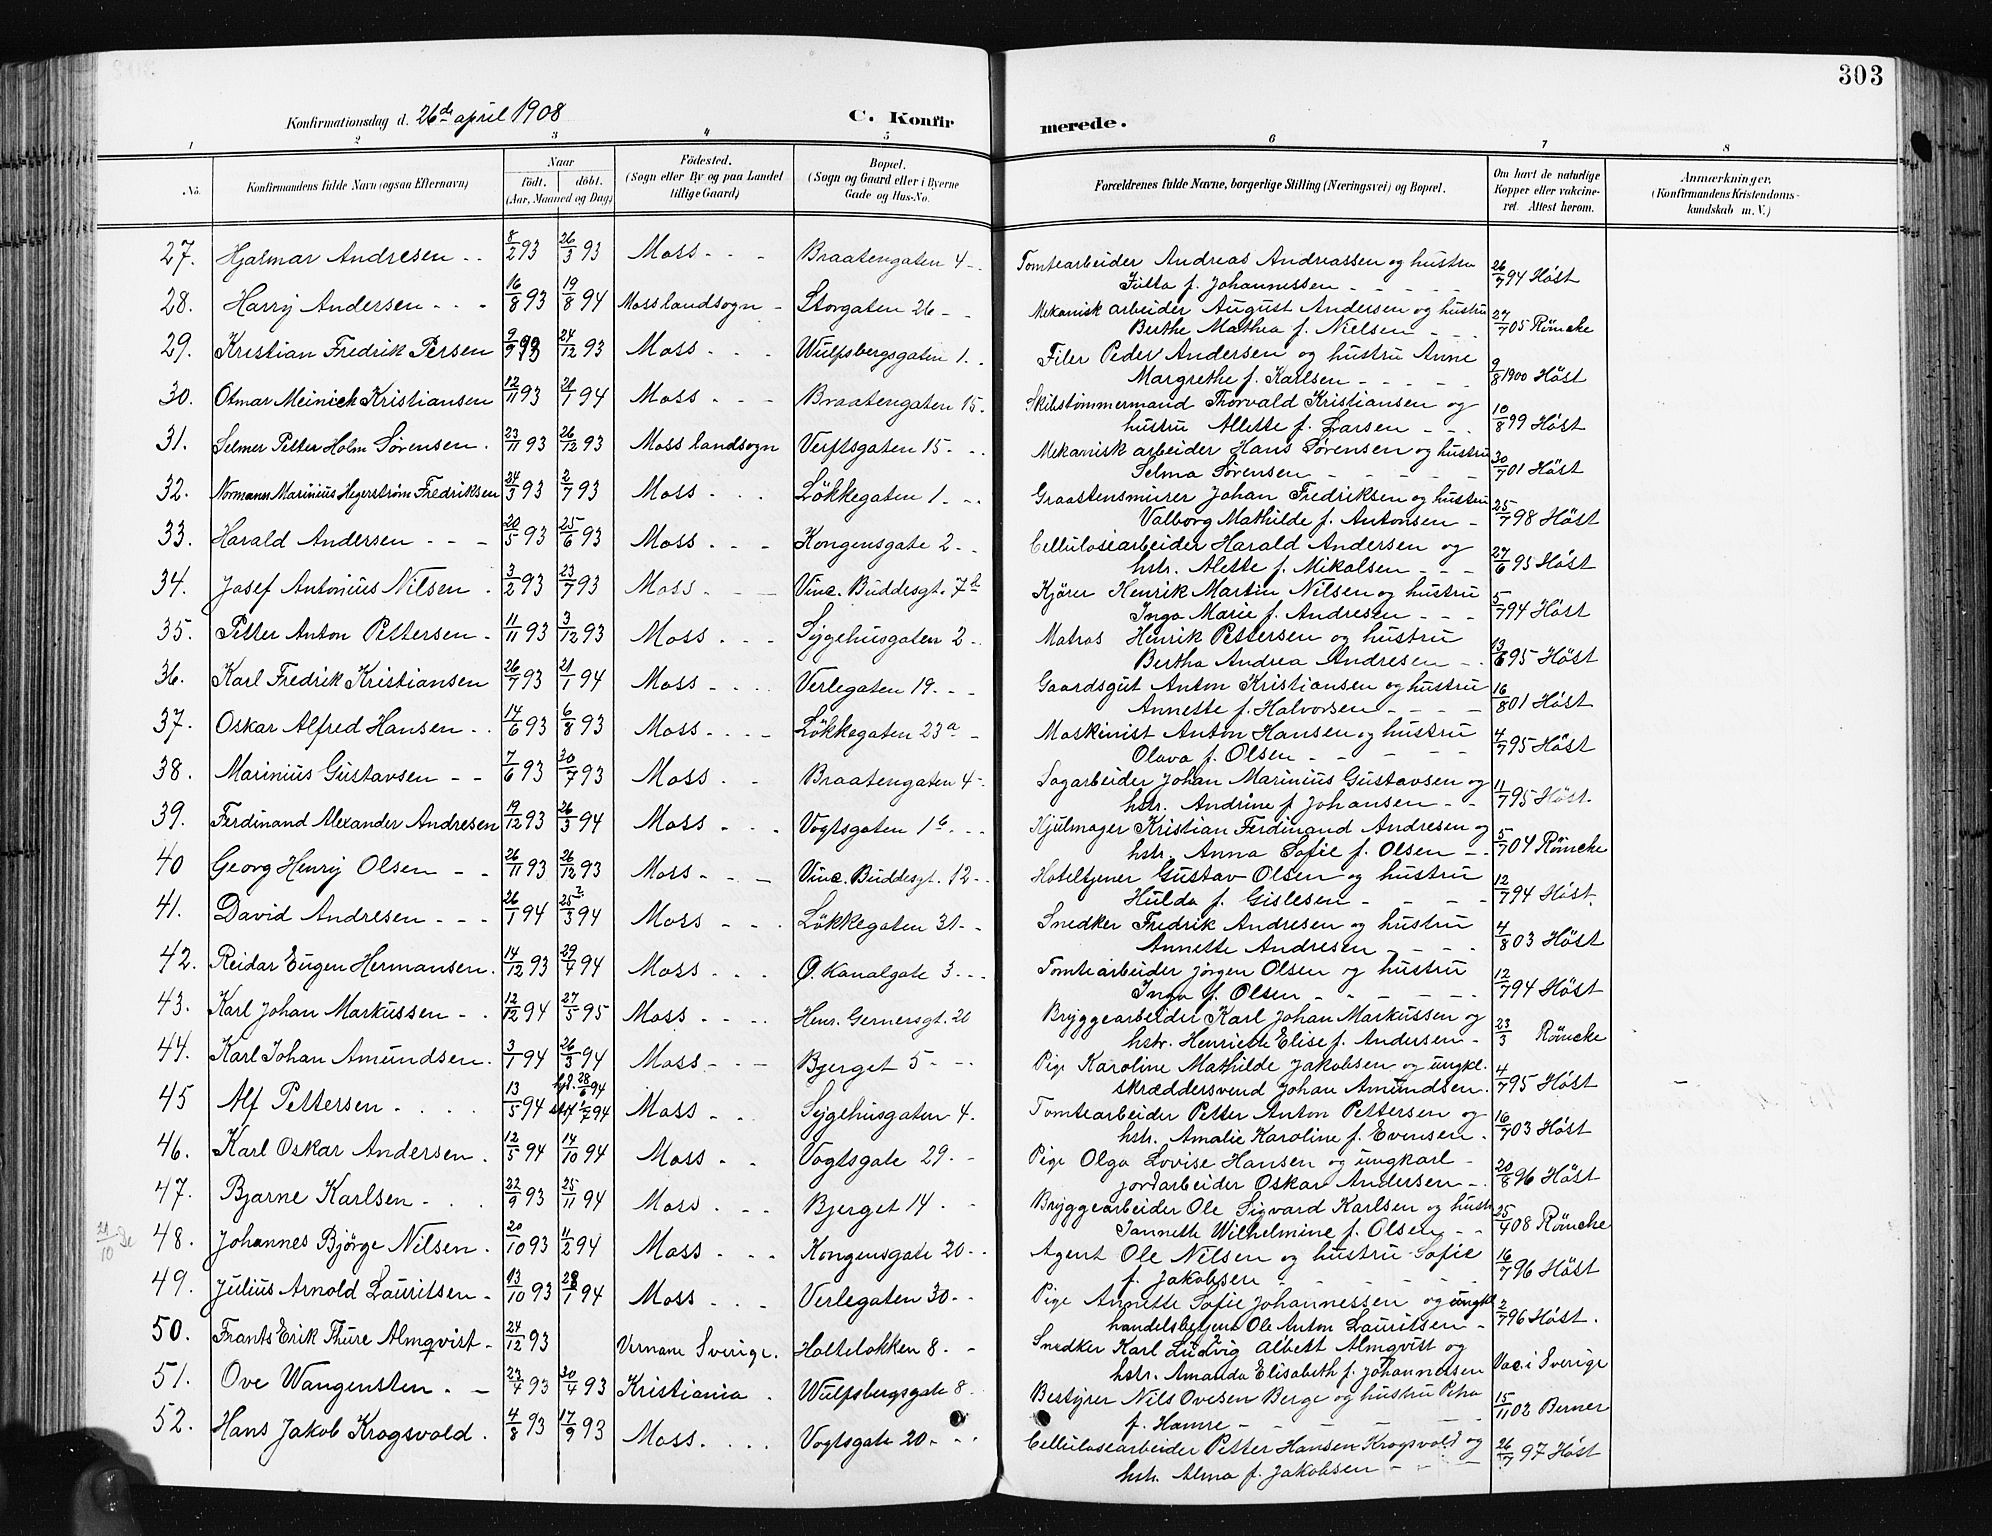 303
Konfirmationsdag d. 26de april 1908
C. Konfirmerede.
1 2 3 4 5 6 7 8
No. Konfirmandens fulde Navn (ogsaa Efternavn) Naar födt. döbt. (Aar, Maaned og Dag) Födested. (Sogn eller By og paa Landet tillige Gaard) Bopæl. (Sogn og Gaard eller i Byerne Gade og Hus-No. Forældrenes fulde Navne, borgerlige Stilling (Næringsvei) og Bopæl. Om havt de naturlige Kopper eller vakcineret. Attest herom. Anmærkninger. (Konfirmandens Kristendomskundskab m. V.)
27. Hjalmar Andresen 8/2 93 26/3 93 Moss Braatengaten 4 Tomtearbeider Andreas Andreassen og hustru
Julla f. Johannessen 26/7 94 Höst
28. Harry Andersen 16/8 93 19/8 94 Moss landsogn Storgaten 26 Mekanisk arbeider August Andersen og hustru
Berthe Mathea f. Nielsen 27/7 05 Römcke
29. Kristian Fredrik Persen 9/9 93 24/12 93 Moss Wulfsbergsgaten 1. Filer Peder Andersen og hustru Anne
Margrethe f. Karlsen 9/8 1900 Höst
30. Otmar Meinich Kristiansen 12/11 93 21/1 94 Moss Braatengaten 15. Skibstömmermand Thorvald Kristiansen og
hustru Allette f. Larsen 10/8 99 Höst
31. Selmer Petter Holm Sørensen. 23/11 93 26/12 93 Moss landsogn Verftsgaten 15 Mekanisk arbeider Hans Sørensen og hustru
Selma Sørensen 30/7 01 Höst
32. Normann Marinius Hegerström Fredriksen 24/3 93 2/7 93 Moss Løkkegaten 1. Graastensmurer Johan Fredriksen og hustru
Valborg Mathilde f. Antonsen 25/7 98 Höst
33. Harald Andersen 20/5 93 25/6 93 Moss Kongensgate 2 Cellulosearbeider Harald Andersen og
hstr. Alette f. Mikalsen 27/6 95 Höst
34. Josef Antonius Nilsen. 3/2 93 23/7 93 Moss Vinc. Buddesgt. 7b Kjører Henrik Martin Nilsen og hustru
Inga Marie f. Andresen 5/7 94 Höst
35. Petter Anton Pettersen 11/11 93 3/12 93 Moss Sygehusgaten 2 Matros Henrik Pettersen og hustru
Bertha Andrea Andresen 13/6 95 Höst
36. Karl Fredrik Kristiansen 26/7 93 21/1 94 Moss Verlegaten 19. Gaardsgut Anton Kristiansen og hustru
Annette f. Halvorsen 16/8 01 Höst
37. Oskar Alfred Hansen 14/6 93 6/8 93 Moss Løkkegaten 23a Maskinist Anton Hansen og hustru
Olava f. Olsen 4/7 95 Höst
38. Marinius Gustavsen 7/6 93 30/7 93 Moss Braatengaten 4 Sagarbeider Johan Marinius Gustavsen og
hstr. Andrine f. Johansen 11/7 95 Höst.
39. Ferdinand Alexander Andresen 19/12 93 26/3 94 Moss Vogtsgaten 1b Hjulmager Kristian Ferdinand Andresen og
hstr. Anna Sofie f. Olsen 5/7 04 Römcke
40 Georg Henry Olsen 26/11 93 26/12 93 Moss Vinc. Buddesgt. 12 Hoteltjener Gustav Olsen og hustru
Hulda f. Gislesen 12/7 94 Höst.
41. David Andresen 26/1 94 25?/3 94 Moss Løkkegaten 31 Snedker Fredrik Andresen og hustru
Annette Andresen 4/8 03 Höst
42. Reidar Eugen Hermansen. 14/12 93 29/4 94 Moss Ø. Kanalgate 3 Tomtearbeider Jørgen Olsen og hustru
Inga f. Olsen 12/7 94 Höst
43. Karl Johan Markussen 12/12 94 27/5 95 Moss Henr. Gernersgt. 20 Bryggearbeider Karl Johan Markussen og
hstr. Henriette Elise f. Andersen 23/3 Römcke
44. Karl Johan Amundsen. 3/1 94 26/3 94 Moss Bjerget 5 Pige Karoline Mathilde Jakobsen og ungkl.
skræddersvend Johan Amundsen. 4/7 95 Höst
45 Alf Pettersen 13/5 94 hjd. 28/6 94 1/7 94 Moss Sygehusgaten 4. Tomtearbeider Petter Anton Pettersen og
hstr. Amalie Karoline f. Evensen. 16/7 03 Höst
46. Karl Oskar Andersen. 12/5 94 14/10 94 Moss Vogtsgate 29. Pige Olga Lovise Hansen og ungkarl
jordarbeider Oskar Andersen 20/8 96 Höst
47. Bjarne Karlsen 22/9 93 25/11 94 Moss Bjerget 14 Bryggearbeider Ole Sigvard Karlsen og hustr
Jannette Wilhelmine f. Olsen 25/4 08 Römcke
21/10 48. Johannes Bjørge Nilsen. 20/10 93 11/2 94 Moss Kongensgate 20 Agent Ole Nilsen og hustru Sofie
f. Jakobsen 16/7 96 Höst
49. Julius Arnold Lauritsen 13/10 93 28/1 94 Moss Verlegaten 30 Pige Annette Sofie Johannessen og ungkl
handelsbetjent Ole Anton Lauritsen 2/7 96 Höst.
50. Frants Erik Thure Almqvist 24/12 93 Vernam Sverige. Holteløkken 8 Snedker Karl Ludvig Albett Almqvist og
hstr. Amanda Elisabeth f. Johannessen Vac. i Sverige
51. Ove Wangensten 23/4 93 30/4 93 Kristiania Wulfsbergsgate 8. Bestyrer Nils Ovesen Berge og hustru Petra
f. Hamre 15/11 02 Berner
52. Hans Jakob Krogsvold. 4/8 93 17/9 93 Moss. Vogtsgate 20 Cellulosearbeider Petter Hansen Krogsvold og
hstr. Alma f. Jakobsen 26/7 97 Höst